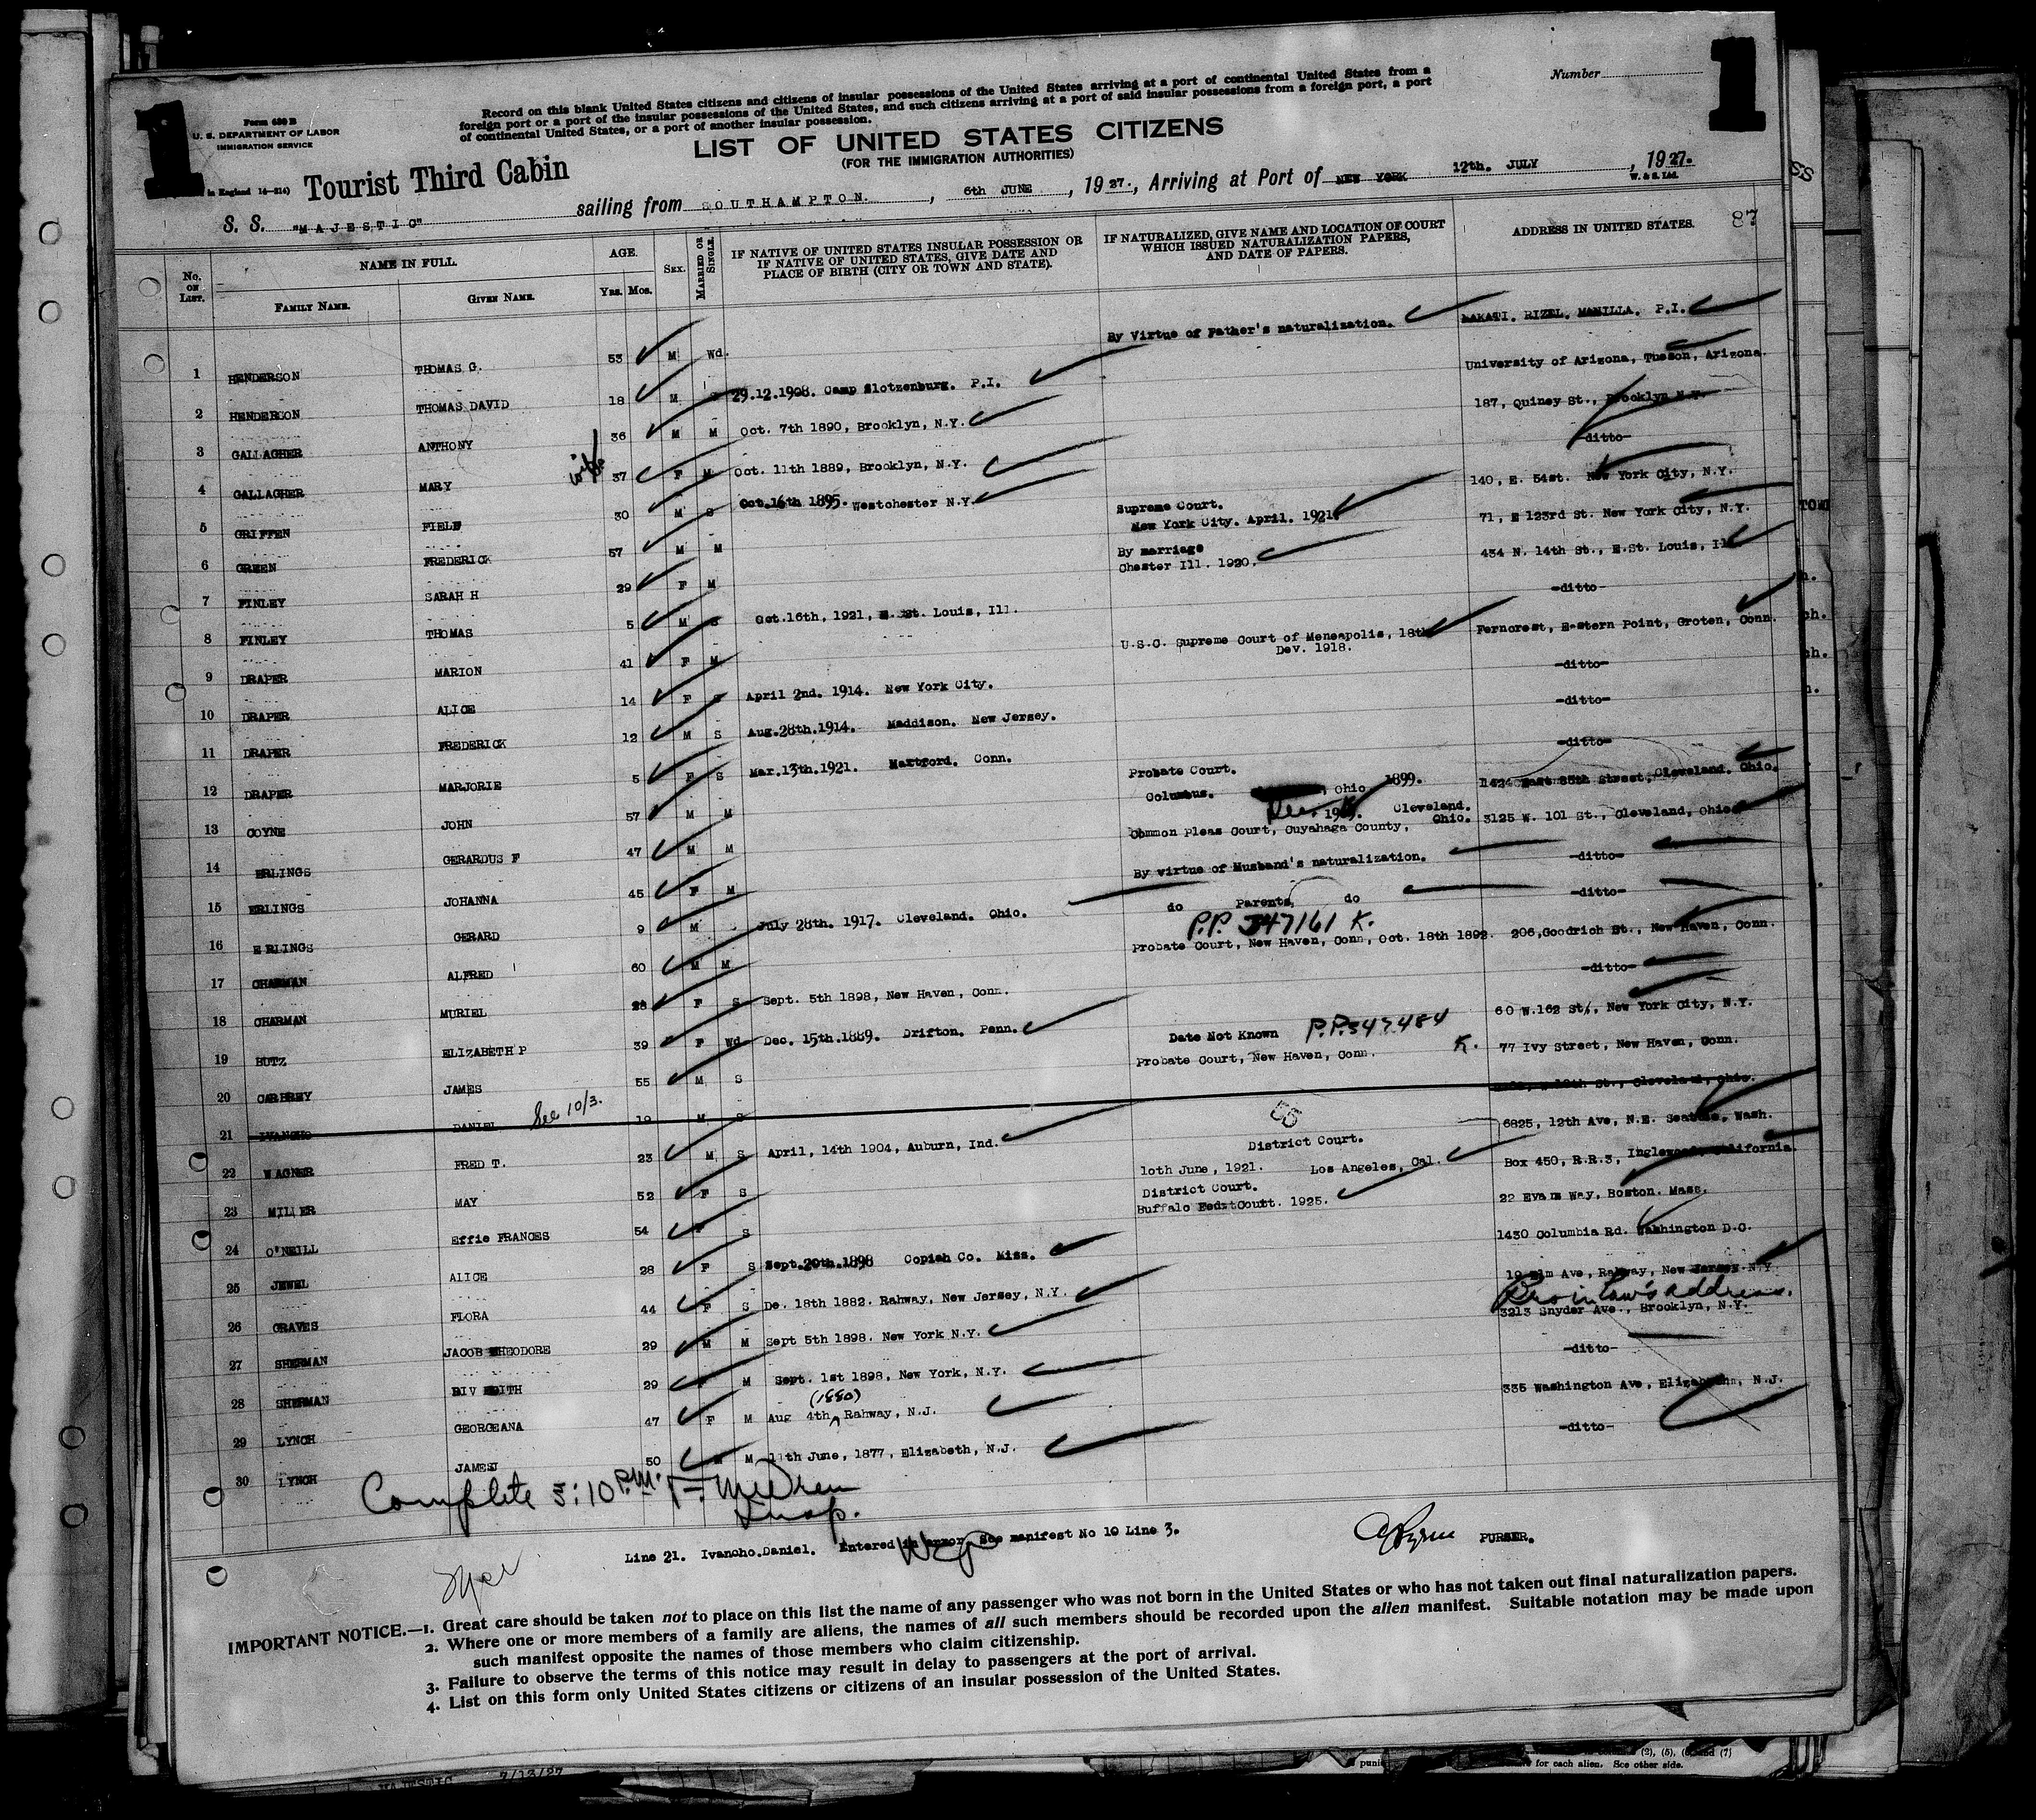 1
1
Number
Form 630 B
U. S. DEPARTMENT OF LABOR
IMMIGRATION SERVICE
in England 14—214)
Record on this blank United States citizens and citizens of insular possessions of the United States arriving at a port of continental United States from a
foreign port or a port of the insular possessions of the United States, and such citizens arriving at a port of said insular possessions from a foreign port, a port
of continental United States, or a port of another insular possession.
LIST OF UNITED STATES CITIZENS
(FOR THE IMMIGRATION AUTHORITIES)
Tourist Third Cabin
S. S. "MAJESTIC" sailing from SOUTHAMPTON. , 6th JUNE , 1927., Arriving at Port of NEW YORK 12th. JULY , 1927.
W. & S. Ltd.
87
No. ON LIST. NAME IN FULL. AGE. SEX. MARRIED OR SINGLE. IF NATIVE OF UNITED STATES INSULAR POSSESSION OR IF NATIVE OF UNITED STATES, GIVE DATE AND PLACE OF BIRTH (CITY OR TOWN AND STATE). IF NATURALIZED, GIVE NAME AND LOCATION OF COURT WHICH ISSUED NATURALIZATION PAPERS, AND DATE OF PAPERS. ADDRESS IN UNITED STATES.
FAMILY NAME. GIVEN NAME. Yrs. Mos.
1 HENDERSON THOMAS G. 53 M Wd. By Virtue of Father's naturalization. MAKATI. RIZEL. MANILLA. P.I.
2 HENDERSON THOMAS DAVID 18 M S 29.12.1908. Camp Slotzenburg. P.I. University of Arizona, Tucson, Arizona.
3 GALLAGHER ANTHONY 36 M M Oct. 7th 1890, Brooklyn, N.Y. 187, Quincy St., Brooklyn N.Y.
4 GALLAGHER MARY wife 37 F M Oct. 11th 1889, Brooklyn, N.Y. -ditto-
5 GRIFFEN FIELD 30 M S Oct.16th 1895. Westchester N.Y. 140, E. 54st. New York City, N.Y.
6 GREEN FREDERICK 57 M M Supreme Court. New York City. April. 1921. 71, E 123rd St. New York City, N.Y.
7 FINLEY SARAH H 29 F M By marriage Chester Ill. 1920. 434 N. 14th St., E.St. Louis, Ill
8 FINLEY THOMAS 5 M S Oct.16th, 1921, E. St. Louis, Ill. -ditto-
9 DRAPER MARION 41 F M U.S.C. Supreme Court of Meneapolis, 18th Dev. 1918. Ferncrest, Eastern Point, Groten, Conn.
10 DRAPER ALICE 14 F S April 2nd. 1914. New York City. -ditto-
11 DRAPER FREDERICK 12 M S Aug.28th.1914. Maddison. New Jersey. -ditto-
12 DRAPER MARJORIE 5 F S Mar.13th.1921. Hartford. Conn. -ditto-
13 COYNE JOHN 57 M M Probate Court. Columbus. Ohio 1899. 1424 East 85th Street, Cleveland. Ohio.
14 ERLINGS GERARDUS F 47 M M Common Pleas Court, Cuyahaga County, Cleveland. Ohio. 3125 W. 101 St., Cleveland, Ohio
15 ERLINGS JOHANNA 45 F M By virtue of Husband's naturalization. -ditto-
16 ERLINGS GERARD 9 M July 28th. 1917. Cleveland. Ohio. do Parents, do -ditto-
P.P. 347161 K.
17 CHARMAN ALFRED 60 M M Probate Court, New Haven, Conn, Oct. 18th 1892. 206, Goodrich St., New Haven, Conn.
18 CHARMAN MURIEL 28 F S Sept. 5th 1898, New Haven, Conn. -ditto-
19 BUTZ ELIZABETH P 39 F Wd Dec. 15th.1889. Drifton. Penn. 60 W.162 St/, New York City, N.Y.
20 CARBREY JAMES 55 M S Date Not Known P.P.347484 K. Probate Court, New Haven, Conn. 77 Ivy Street, New Haven, Conn.
21 IVANCHO DANIEL See 10/3. 19 M S th St., Cleveland, Ohio.
22 WAGNER FRED T. 23 M S April, 14th 1904, Auburn, Ind. 6825, 12th Ave, N.E. Seattle, Wash.
55
23 MILLER MAY 52 F S District Court. 10th June, 1921. Los Angeles, Cal. Box 450, R.R.3, Inglewood, California.
24 O'NEILL Effie FRANCES 54 F S District Court. Buffalo 1925. 22 Evans Way, Boston. Mass.
25 JEWEL ALICE 28 F S Sept.20th.1898 Copiah Co. Miss. 1430 Columbia Rd. Washington D.C.
26 GRAVES FLORA 44 F S De. 18th 1882. Rahway, New Jersey, N.Y. 19 Elm Ave, Rahway, New Jersey N.Y.
Bro in law's address.
27 SHERMAN JACOB THEODORE 29 M M Sept 5th 1898. New York N.Y. 3213 Snyder Ave., Brooklyn, N.Y.
28 SHERMAN RIV EDITH 29 F M Sept. 1st 1898, New York, N.Y. -ditto-
29 LYNCH GEORGEANA 47 F M Aug 4th (1880) Rahway, N.J. 335 Washington Ave, Elizabeth, N.J.
30 LYNCH JAMES 50 M M 11th June, 1877, Elizabeth, N.J. -ditto-
Complete 3:10 P.M.
Insp.
Line 21. Ivancho.Daniel. Entered in error See manifest No 10 Line 3.
PURSER.
IMPORTANT NOTICE.—1. Great care should be taken not to place on this list the name of any passenger who was not born in the United States or who has not taken out final naturalization papers.
2. Where one or more members of a family are aliens, the names of all such members should be recorded upon the alien manifest. Suitable notation may be made upon
such manifest opposite the names of those members who claim citizenship.
3. Failure to observe the terms of this notice may result in delay to passengers at the port of arrival.
4. List on this form only United States citizens or citizens of an insular possession of the United States.
MAJESTIC 7/13/27
(2), (5), (6) and (7)
for each alien. See other side.